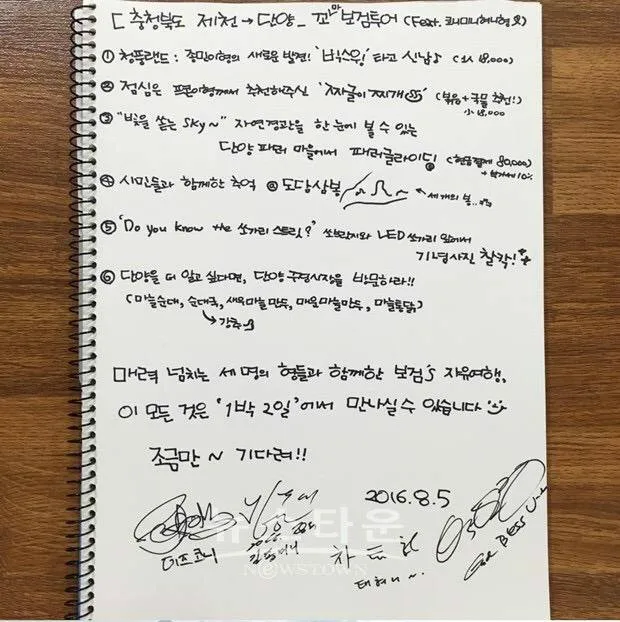 [ 충청북도 제천 → 단양_ 꼬마보검투어 (Feat.
① 청풍랜드 : 종민이형의 새로운 발견! '빅스윙' 타고 신남♪ (1人 18,000)
② 점심은 프콘이형께서 추천해주신 '짜글이찌개' (볶음+국물 추천!)
小 18,000
③ "빛을 쏟는 Sky~" 자연경관을 한 눈에 볼 수 있는
단양 파러 마을에서 패러글라이딩 (현금결제 80,000)
+ 부가세 10%
④ 시민들과 함께한 추억 @ 도담삼봉 ← 세개의 봉..
⑤ 'Do you know the 쏘가리 스트릿?' 쏘가리와 LED 쏘가리 앞에서
기념사진 찰칵!
⑥ 단양을 더 알고 싶다면, 단양 구경시장을 방문하라!!
(마늘순대, 순대국, 새우마늘만두, 매운마늘만두, 마늘통닭)
↳ 강추
매력 넘치는 세 명의 형들과 함께한 보검's 자유여행,
이 모든 것은 '1박 2일'에서 만나실 수 있습니다
조금만 ~ 기다려!!
2016.8.5
차 태 현
태혀니~.
God BLESS U~
뉴스타운
NEWSTOWN